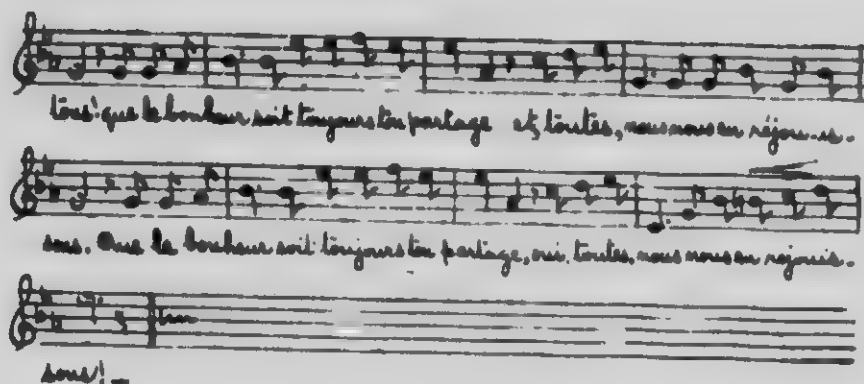 tous! que le bonheur soit toujours ton partage et, toutes, nous nous en réjouis-
sons. Que le bonheur soit toujours ton partage, oui, toutes, nous nous en réjouis-
sons! _